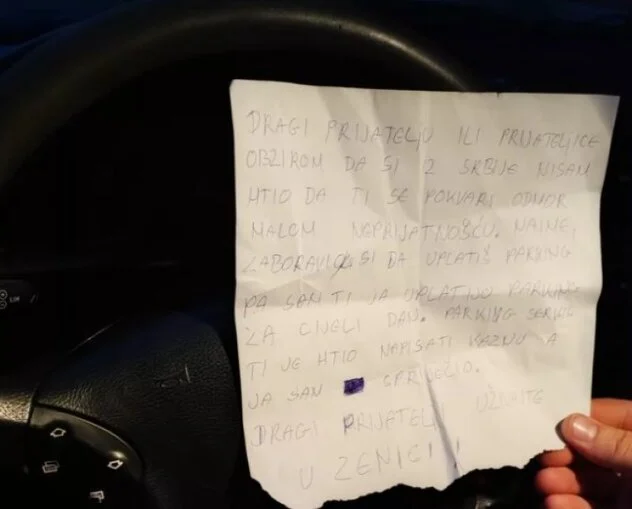 DRAGI PRIJATELJU ILI PRIJATELJICE
OBZIROM DA SI IZ SRBIJE NISAM
HTIO DA TI SE POKVARI ODMOR
MALOM NEPRIJATNOŠĆU. NAIME,
ZABORAVIO SI DA UPLATIŠ PARKING
PA SAM TI JA UPLATIO PARKING
ZA CIJELI DAN. PARKING SERVIS
TI JE HTIO NAPISATI KAZNU A
JA SAM SPRIJEČIO.
DRAGI PRIJATELJ UŽIVAJTE
U ZENICI!